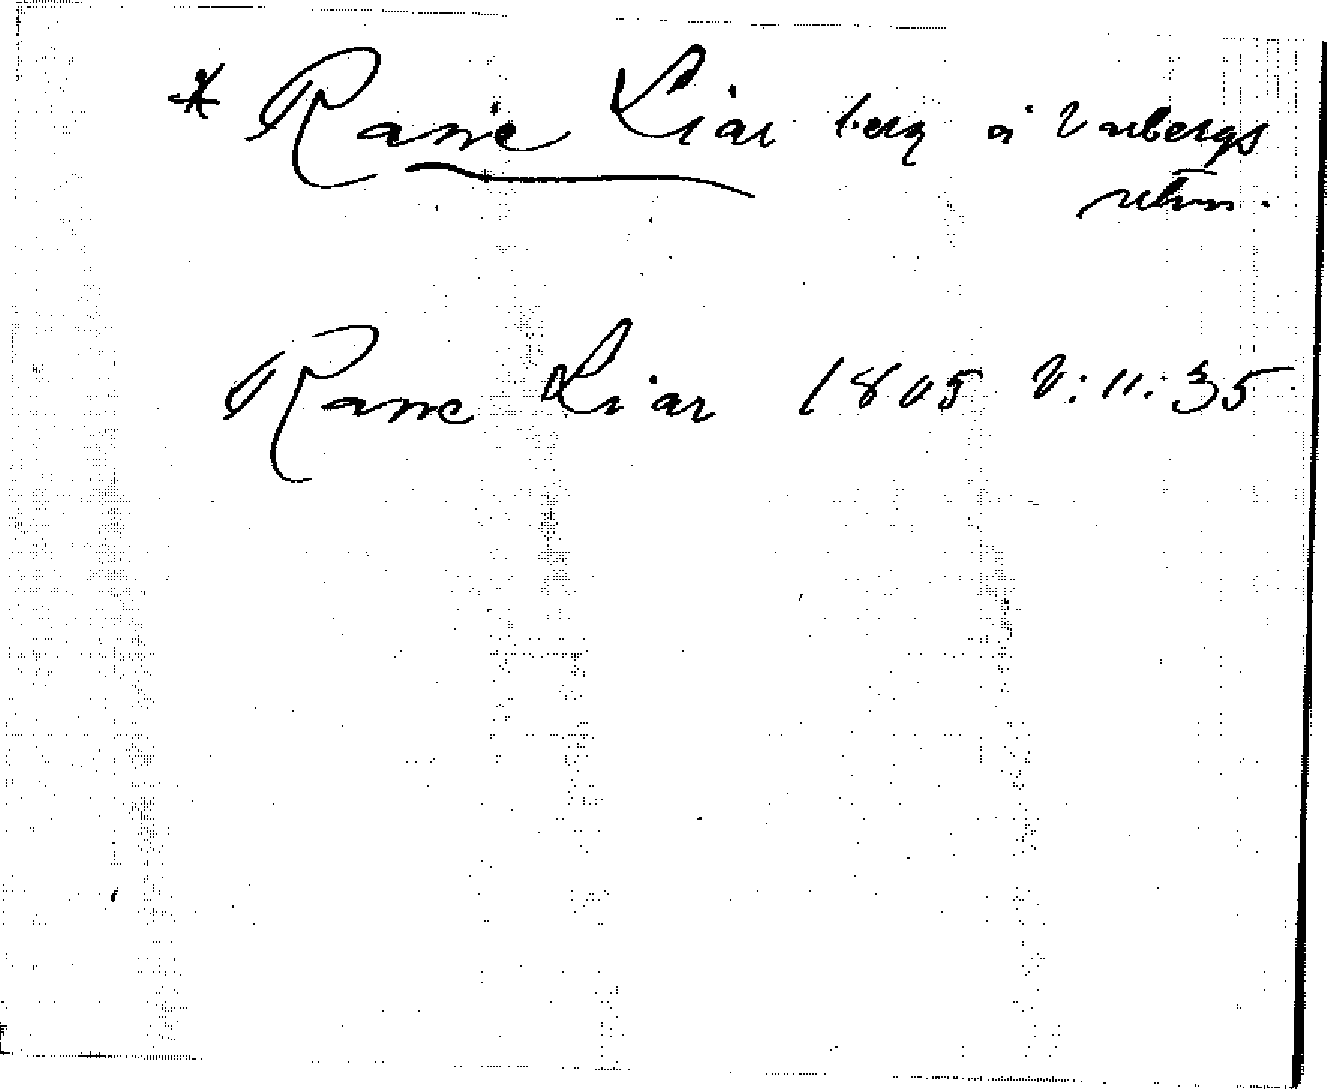 * Rame Liar berg å Varbergs
utm.
Rame Liar 1805 V:11:35